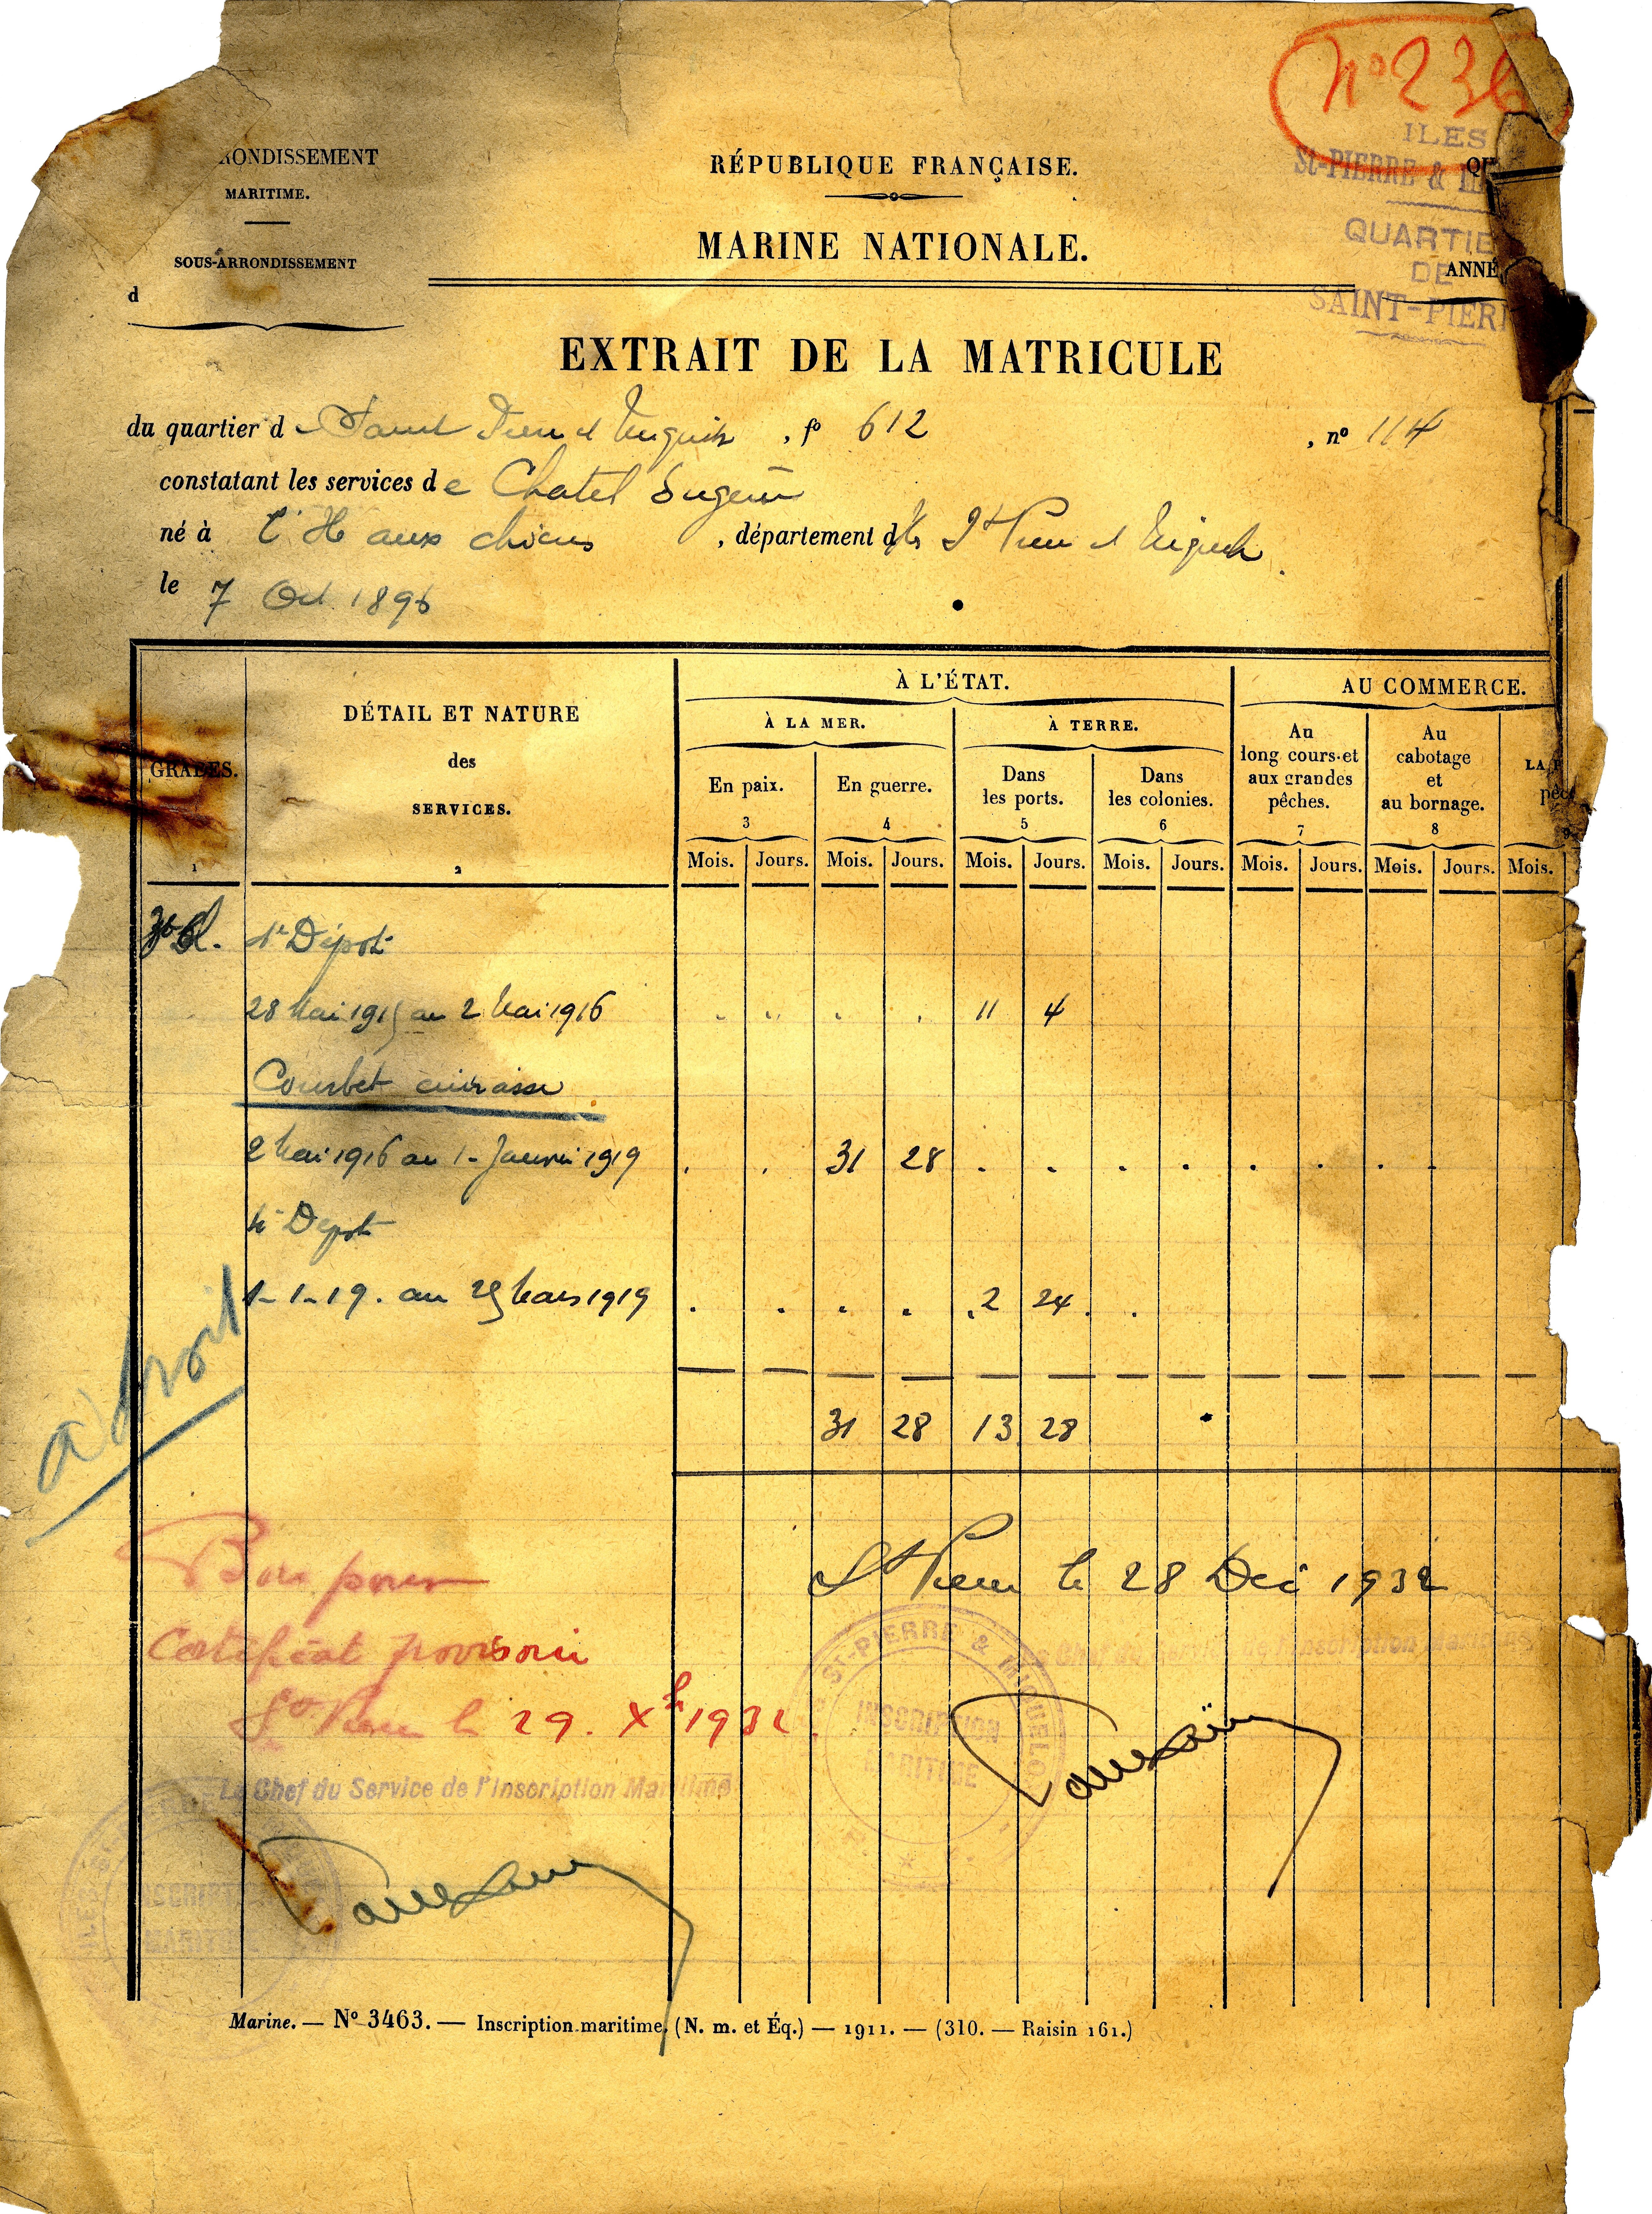 No 236
RONDISSEMENT
MARITIME.
SOUS-ARRONDISSEMENT
d
RÉPUBLIQUE FRANÇAISE.
MARINE NATIONALE.
ILES
St-PIERRE &
QU
QUARTIE
DE
ANNÉ
SAINT-PIERR
EXTRAIT DE LA MATRICULE
du quartier d Saint Pierre et Miquelon , fo 612 , no 114
constatant les services de Chatel Eugène
né à l'Ile aux chiens , département d Iles St Pierre et Miquelon
le 7 Oct 1896
GRADES.
1
DÉTAIL ET NATURE
des
SERVICES.
2
À L'ÉTAT.
AU COMMERCE.
À LA MER.
À TERRE.
En paix.
3
En guerre.
4
Dans
les ports.
5
Dans
les colonies.
6
Au
long cours et
aux grandes
pêches.
7
Au
cabotage
et
au bornage.
8
LA
Mois. Jours. Mois. Jours. Mois. Jours. Mois. Jours. Mois. Jours. Mois. Jours. Mois.
1er Dépôt
28 Mai 1915 au 2 Mai 1916 11 4
Courbet cuirassé
2 Mai 1916 au 1- Janvier 1919 31 28
4e Dépôt
1-1-19. au 25 Mars 1919 2 24
31 28 13 28
à droit
Bon pour
Certificat provisoire
St Pierre le 29. Xbre 1932
Le Chef du Service de l'Inscription Maritime
St Pierre le 28 Dec 1932
Le Chef du Service de l'Inscription Maritime
ST-PIERRE & MIQUELON
INSCRIPTION
MARITIME
INSCRIPTION
MARITIME
Marine. — No 3463. — Inscription maritime. (N. m. et Éq.) — 1911. — (310. — Raisin 161.)